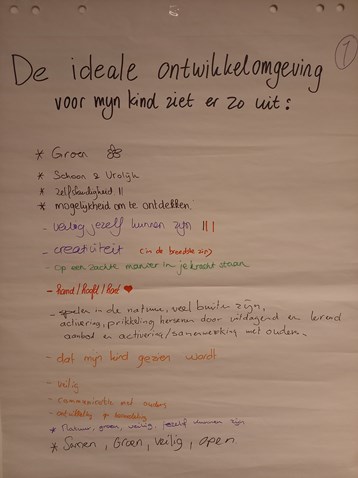 1
De ideale ontwikkelomgeving
voor mijn kind ziet er zo uit:
* Groen
* Schoon & Vrolijk
* zelfstandigheid ||
* mogelijkheid om te ontdekken.
- veilig jezelf kunnen zijn |||
- creativiteit (in de breedste zin)
- op een zachte manier in je kracht staan
- hand/hoofd/hart ♥
- spelen in de natuur, veel buiten zijn,
activering, prikkeling hersenen door uitdagend en lerend
aanbod en activering/samenwerking met ouders.
- dat mijn kind gezien wordt
- veilig
- communicatie met ouders
- ontwikkeling
* Natuur, groen, veilig, jezelf kunnen zijn
* Samen, Groen, veilig, open